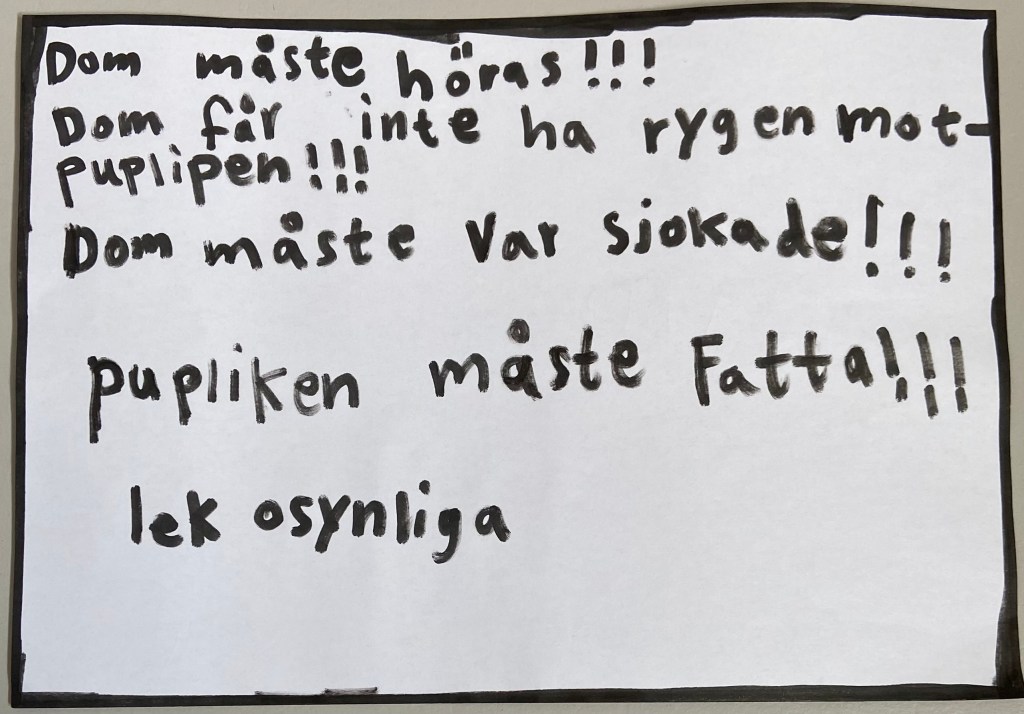 Dom måste höras!!!
Dom får inte ha rygen mot-
puplipen!!!
Dom måste var sjokade!!!
pupliken måste Fatta!!!
lek osynliga